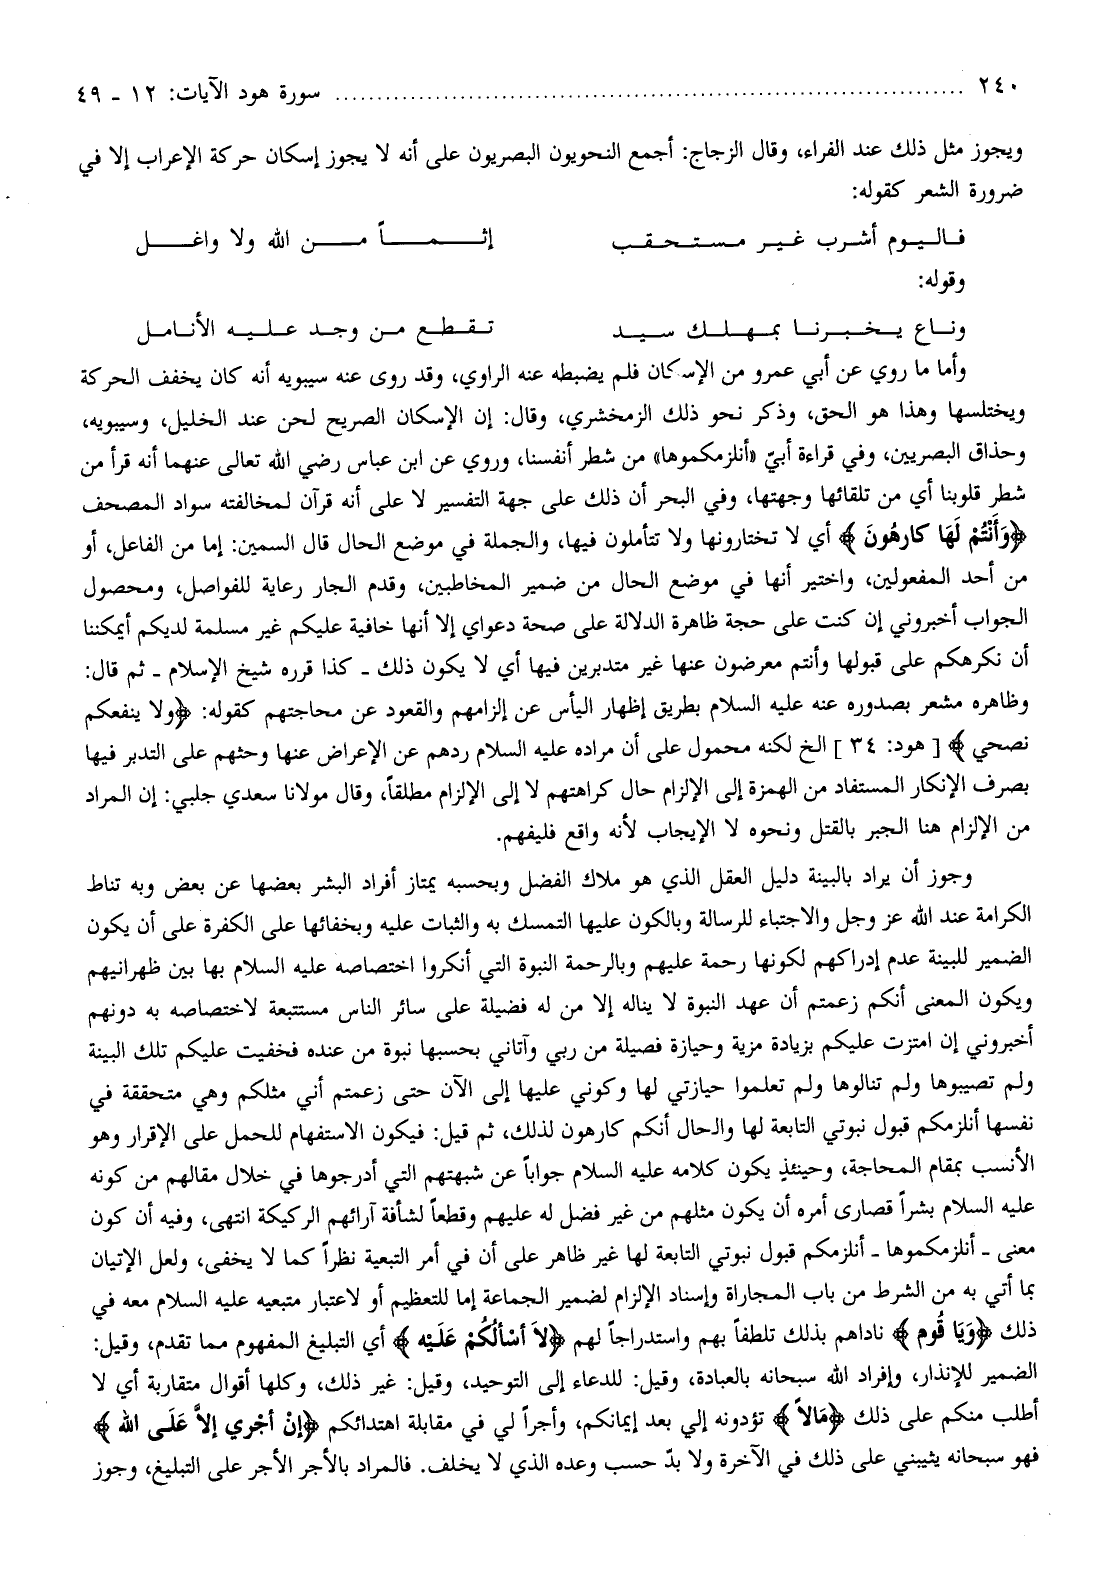 ٢٤٠ ................ سورة هود الآيات: ١٢ - ٤٩
ويجوز مثل ذلك عند الفراء، وقال الزجاج: أجمع النحويون البصريون على أنه لا يجوز إسكان حركة الإعراب إلا في
ضرورة الشعر كقوله:
فاليوم أشرب غير مستحقب إثماً من الله ولا واغل
وقوله:
وناع يخبرنا بمهلك سيد تقطع من وجد عليه الأنامل
وأما ما روي عن أبي عمرو من الإسكان فلم يضبطه عنه الراوي، وقد روى عنه سيبويه أنه كان يخفف الحركة
ويختلسها وهذا هو الحق، وذكر نحو ذلك الزمخشري، وقال: إن الإسكان الصريح لحن عند الخليل، وسيبويه،
وحذاق البصريين، وفي قراءة أبيّ «أنلزمكموها» من شطر أنفسنا، وروي عن ابن عباس رضي الله تعالى عنهما أنه قرأ من
شطر قلوبنا أي من تلقائها وجهتها، وفي البحر أن ذلك على جهة التفسير لا على أنه قرآن لمخالفته سواد المصحف
﴿وَأَنْتُمْ لَهَا كارهُونَ﴾ أي لا تختارونها ولا تتأملون فيها، والجملة في موضع الحال قال السمين: إما من الفاعل، أو
من أحد المفعولين، واختير أنها في موضع الحال من ضمير المخاطبين، وقدم الجار رعاية للفواصل، ومحصول
الجواب أخبروني إن كنت على حجة ظاهرة الدلالة على صحة دعواي إلا أنها خافية عليكم غير مسلمة لديكم أيمكننا
أن نكرهكم على قبولها وأنتم معرضون عنها غير متدبرين فيها أي لا يكون ذلك ـ كذا قرره شيخ الإسلام ـ ثم قال:
وظاهره مشعر بصدوره عنه عليه السلام بطريق إظهار اليأس عن إلزامهم والقعود عن محاجتهم كقوله: ﴿ولا ينفعكم
نصحي﴾ [ هود: ٣٤ ] الخ لكنه محمول على أن مراده عليه السلام ردهم عن الإعراض عنها وحثهم على التدبر فيها
بصرف الإنكار المستفاد من الهمزة إلى الإلزام حال كراهتهم لا إلى الإلزام مطلقاً، وقال مولانا سعدي جلبي: إن المراد
من الإلزام هنا الجبر بالقتل ونحوه لا الإيجاب لأنه واقع فليفهم.
وجوز أن يراد بالبينة دليل العقل الذي هو ملاك الفضل وبحسبه يمتاز أفراد البشر بعضها عن بعض وبه تناط
الكرامة عند الله عز وجل والاجتباء للرسالة وبالكون عليها التمسك به والثبات عليه وبخفائها على الكفرة على أن يكون
الضمير للبينة عدم إدراكهم لكونها رحمة عليهم وبالرحمة النبوة التي أنكروا اختصاصه عليه السلام بها بين ظهرانيهم
ويكون المعنى أنكم زعمتم أن عهد النبوة لا يناله إلا من له فضيلة على سائر الناس مستتبعة لاختصاصه به دونهم
أخبروني إن امتزت عليكم بزيادة مزية وحيازة فصيلة من ربي وآتاني بحسبها نبوة من عنده فخفيت عليكم تلك البينة
ولم تصيبوها ولم تنالوها ولم تعلموا حيازتي لها وكوني عليها إلى الآن حتى زعمتم أني مثلكم وهي متحققة في
نفسها أنلزمكم قبول نبوتي التابعة لها والحال أنكم كارهون لذلك، ثم قيل: فيكون الاستفهام للحمل على الإقرار وهو
الأنسب بمقام المحاجة، وحينئذٍ يكون كلامه عليه السلام جواباً عن شبهتهم التي أدرجوها في خلال مقالهم من كونه
عليه السلام بشراً قصارى أمره أن يكون مثلهم من غير فضل له عليهم وقطعاً لشأفة آرائهم الركيكة انتهى، وفيه أن كون
معنى ـ أنلزمكموها ـ أنلزمكم قبول نبوتي التابعة لها غير ظاهر على أن في أمر التبعية نظراً كما لا يخفى، ولعل الإتيان
بما أتي به من الشرط من باب المجاراة وإسناد الإلزام لضمير الجماعة إما للتعظيم أو لاعتبار متبعيه عليه السلام معه في
ذلك ﴿وَيَا قُوم﴾ ناداهم بذلك تلطفاً بهم واستدراجاً لهم ﴿لاَ أَسْأَلُكُمْ عَلَيْه﴾ أي التبليغ المفهوم مما تقدم، وقيل:
الضمير للإنذار، وإفراد الله سبحانه بالعبادة، وقيل: للدعاء إلى التوحيد، وقيل: غير ذلك، وكلها أقوال متقاربة أي لا
أطلب منكم على ذلك ﴿مَالاً﴾ تؤدونه إلي بعد إيمانكم، وأجراً لي في مقابلة اهتدائكم ﴿إنْ أجْري إلاَّ عَلَى الله﴾
فهو سبحانه يثيبني على ذلك في الآخرة ولا بدّ حسب وعده الذي لا يخلف. فالمراد بالأجر الأجر على التبليغ، وجوز